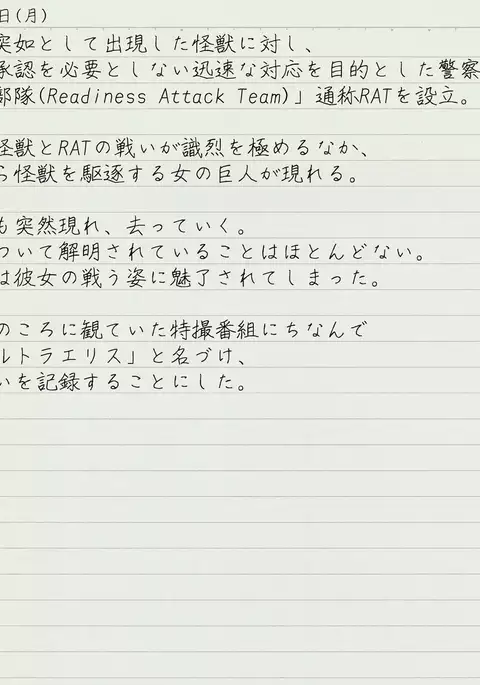 日(月)
突如として出現した怪獣に対し、
承認を必要としない迅速な対応を目的とした警察
部隊(Readiness Attack Team)」通称RATを設立。
怪獣とRATの戦いが識烈を極めるなか、
ら怪獣を駆逐する女の巨人が現れる。
も突然現れ、去っていく。
ついて解明されていることはほとんどない。
は彼女の戦う姿に魅了されてしまった。
のころに観ていた特撮番組にちなんで
ルトラエリス」と名づけ、
いを記録することにした。